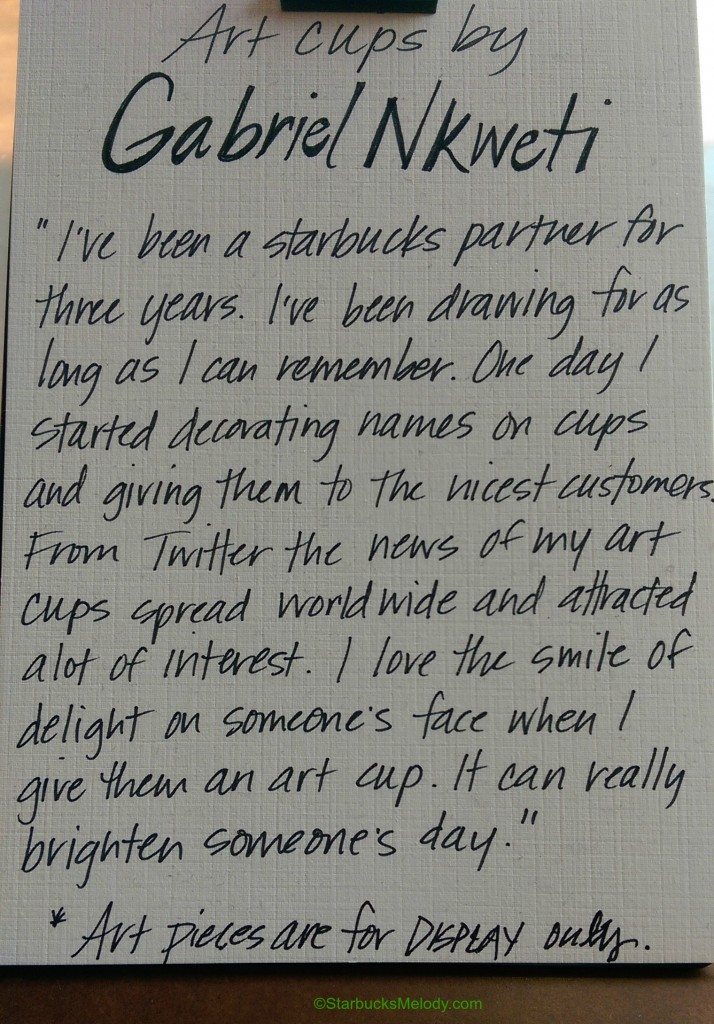 Art cups by
Gabriel Nkweti
"I've been a starbucks partner for
three years. I've been drawing for as
long as I can remember. One day I
started decorating names on cups
and giving them to the nicest customers.
From Twitter the news of my art
cups spread worldwide and attracted
alot of interest. I love the smile of
delight on someone's face when I
give them an art cup. It can really
brighten someone's day."
* Art pieces are for DISPLAY only.
©StarbucksMelody.com